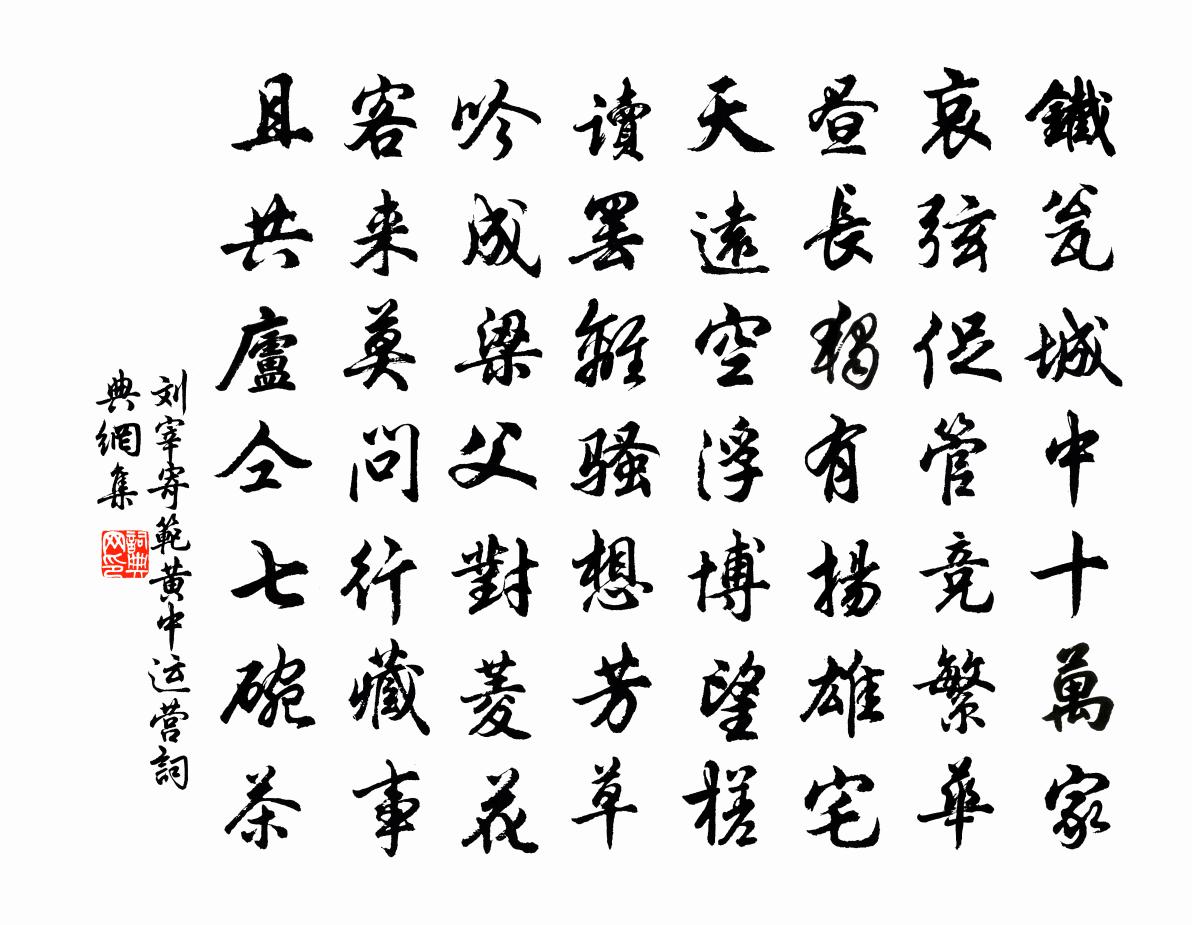 鐵瓮城中十萬家
哀弦促管竞繁華
昼長獨有揚雄宅
天遠空浮博望槎
讀罢離騷想芳草
吟成梁父對菱花
客来莫問行藏事
且共廬仝七碗茶
刘宰寄範黄中运营詞
典網集
詞典
网印